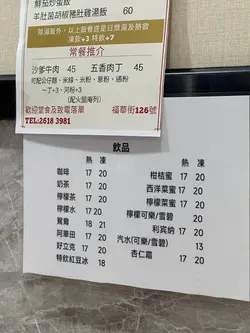 鮮茄炒蛋飯
羊肚菌胡椒豬肚雞湯飯 60
除湯類外，以上飯餐底是日燉湯及熱飲
凍飲+3 特飲+7
常餐推介
沙爹牛肉 45 五香肉丁 45
可配公仔麵，米線，米粉，意粉，通粉
一丁+3，河粉+3
(配火腿奄列)
歡迎堂食及致電落單 福華街126號
TEL:2618 3981
飲品
熱 凍
咖啡 17 20
奶茶 17 20
檸檬茶 17 20
檸檬水 17 20
鴛鴦 18 21
阿華田 17 20
好立克 17 20
特飲紅豆冰 18
熱 凍
柑桔蜜 17 20
西洋菜蜜 17 20
檸檬菜蜜 17 20
檸檬可樂/雪碧 20
利賓納 17 20
汽水(可樂/雪碧) 13
杏仁霜 17 20